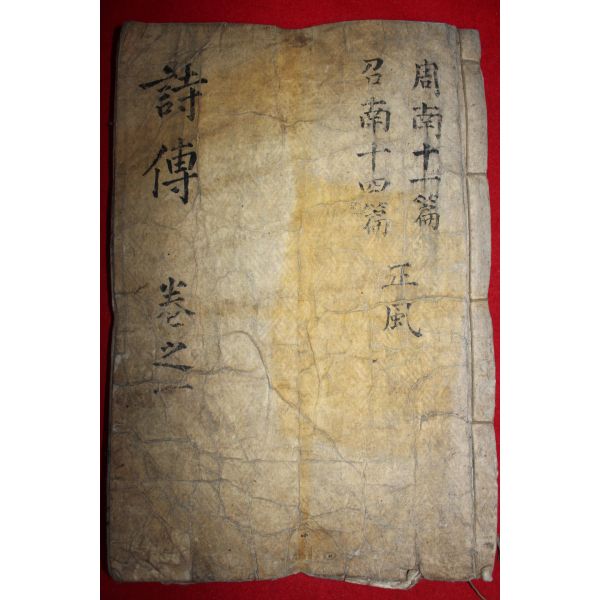 周南十一篇
召南十四篇
正風
詩傳 卷之一